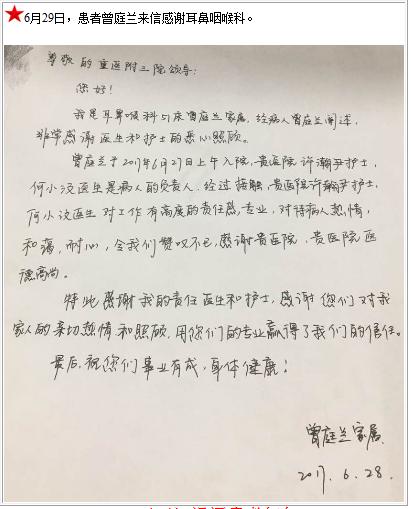 ★6月29日，患者曾庭兰来信感谢耳鼻咽喉科。
尊敬的重医附三院领导：
您好！
我是耳鼻喉科51床曾庭兰家属，经病人曾庭兰阐述，
非常感谢医生和护士的悉心照顾。
曾庭兰于2017年6月27日上午入院，贵医院许瀚尹护士，
何小汶医生是病人的负责人，经过接触，贵医院许瀚尹护士，
何小汶医生对工作有高度的责任感，专业，对待病人热情，
和蔼，耐心，令我们赞叹不已，感谢贵医院，贵医院医
德高尚。
特此感谢我的责任医生和护士，感谢您们对我
家人的亲切热情和照顾，用你们的专业赢得了我们的信任。
最后，祝您们事业有成，身体健康！
曾庭兰家属
2017.6.28.